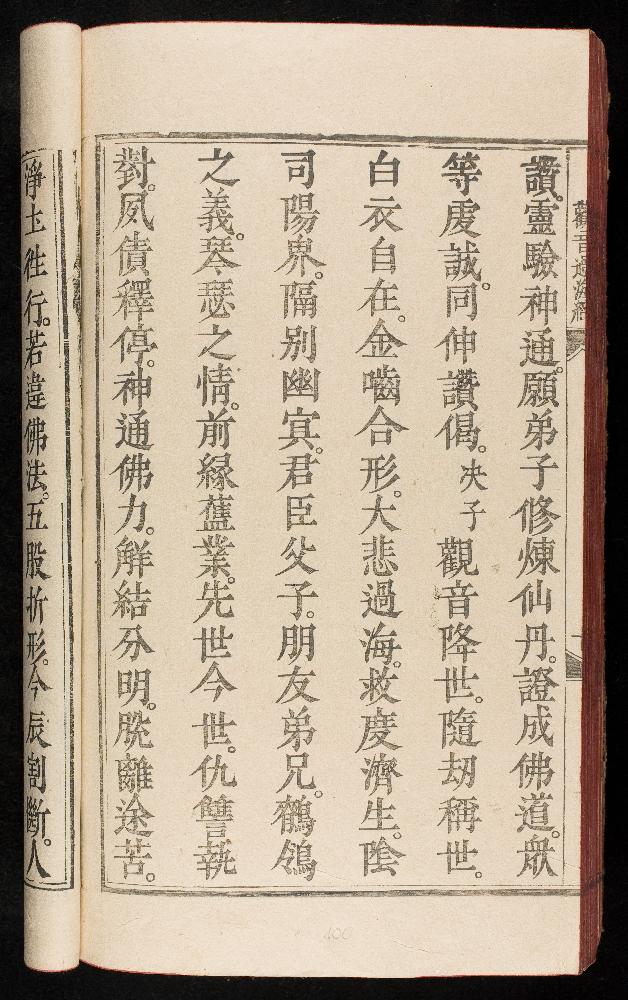 觀音過海經
讚。靈驗神通。願弟子修煉仙丹。證成佛道。眾
等虔誠。同伸讚偈。决子觀音降世。隨劫稱世。
白衣自在。金噛合形。大悲過海。救度濟生。陰
司陽界。隔別幽冥。君臣父子。朋友弟兄。鶺鴒
之義。琴瑟之情。前緣舊業。先世今世。仇讐執
對。夙債釋停。神通佛力。解結分明。脫離途苦。
淨土往行。若違佛法。五股折形。今辰割斷。人